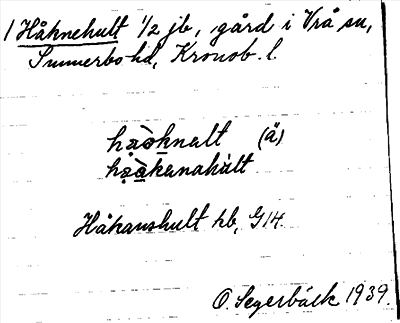 1 Håknehult 1/2 jb, gård i Vrå sn,
Sunnerbo hd, Kronob. l.
håòknalt (ä)
håòkanahùlt
Håkanshult hb, G 14.
O. Segerbäck 1939.